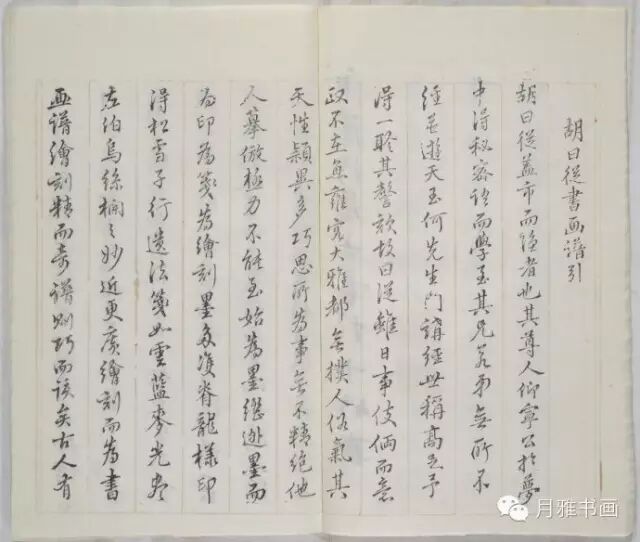 胡曰從書画譜引
胡曰從蓋市而隱者也其尊人仰寧公於夢
中得秘密語而學玉其兄若弟無所不
經芒遊天玉何先生門講經世稱高足予
得一聆其謦欬故曰從雖日事伎倆而意
致不在無雍容大雅都無樸人俗氣其
天性穎異多巧思所為事無不精絕他
人摹倣極力不能至始為墨繼逊墨而
為印為箋為繪刻墨多雙脊龍樣印
得松雪子行遺法箋如雲藍麥光盡
左伯烏絲欄之妙近更廣繪刻而為書
画譜繪刻精而奇譜則巧而該矣古人有
月雅书画